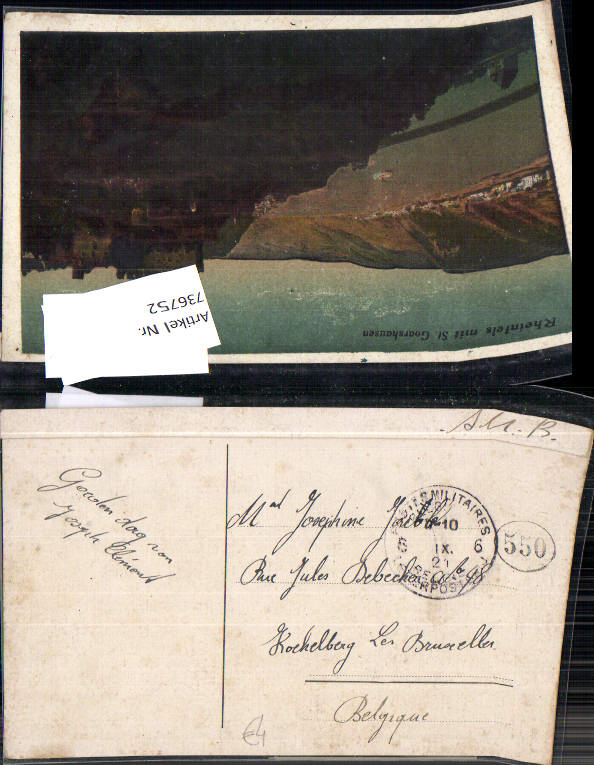 Rheinfels mit St. Goarshausen
Artikel Nr.
736752
S.M.B.
Goeden dag van
Joseph Clément
Josephine
Rue Jules
Koekelberg Les Bruxelles
Belgique
POSTES MILITAIRES
10
IX.
6
21
550
€4